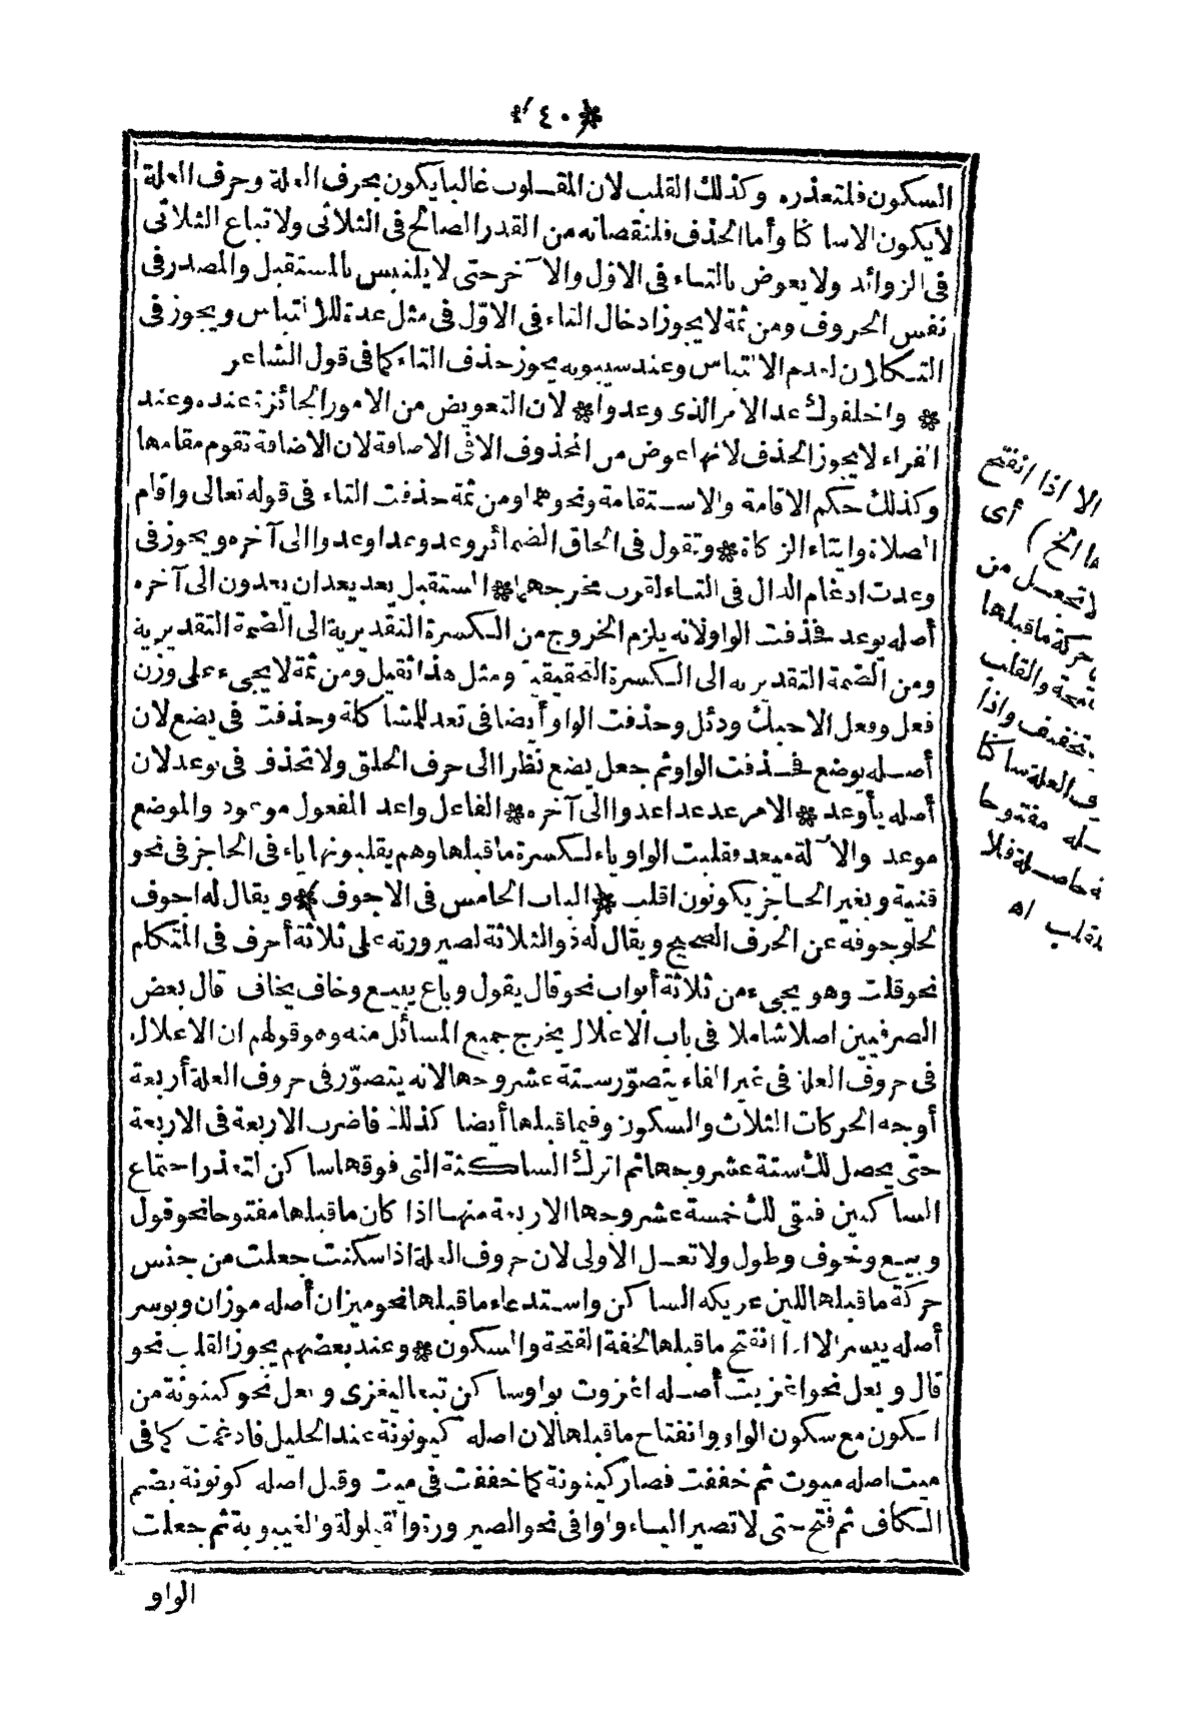 * ٤٠ *
السكون فلتعذره وكذلك القلب لان المقلوب غالبا يكون بحرف العلة وحرف العلة
لا يكون الا ساكنا وأما الحذف فلنقصانه من القدر الصالح فى الثلاثى ولاتباع الثلاثى
فى الزوائد ولا يعوض بالتاء فى الاول والآخر حتى لا يلتبس بالمستقبل والمصدر فى
نفس الحروف ومن ثمة لا يجوز ادخال التاء فى الاوّل فى مثل عدة للالتباس ويجوز فى
التكلان لعدم الالتباس وعند سيبويه يجوز حذف التاء كما فى قول الشاعر
* واخلفوك عد الامر الذى وعدوا * لان التعويض من الامور الجائزة عنده وعند
الفراء لا يجوز الحذف لانها عوض من المحذوف الا فى الاضافة لان الاضافة تقوم مقامها
وكذلك حكم الاقامة والاستقامة ونحوهما ومن ثمة حذفت التاء فى قوله تعالى واقام
الصلاة وايتاء الزكاة * وتقول فى الحاق الضمائر وعد وعدا وعدوا الى آخره ويجوز فى
وعدت ادغام الدال فى التاء لقرب مخرجهما * المستقبل يعد يعدان يعدون الى آخره
أصله يوعد فحذفت الواو لانه يلزم الخروج من الكسرة التقديرية الى الضمة التقديرية
ومن الضمة التقديرية الى الكسرة التحقيقية ومثل هذا ثقيل ومن ثمة لا يجىء على وزن
فعل وفعل الا حبك ودئل وحذفت الواو أيضا فى تعد للمشاكلة وحذفت فى يضع لان
أصله يوضع فحذفت الواو ثم جعل يضع نظرا الى حرف الحلق ولا تحذف فى يوعد لان
أصله يأوعد * الامر عد عدا عدوا الى آخره * الفاعل واعد المفعول موعود والموضع
موعد والآلة ميعد فقلبت الواو ياء لكسرة ما قبلها وهم يقلبونها ياء فى الحاجز فى نحو
قنية وبغير الحاجز يكونون اقلب * الباب الخامس فى الاجوف * ويقال له اجوف
لخلو جوفه عن الحرف الصحيح ويقال له ذو الثلاثة لصيرورته على ثلاثة أحرف فى المتكلم
نحو قلت وهو يجىء من ثلاثة أبواب نحو قال يقول وباع يبيع وخاف يخاف قال بعض
الصرفيين اصلا شاملا فى باب الاعلال يخرج جميع المسائل منه وهو قولهم ان الاعلال
فى حروف العلة فى غير الفاء يتصوّر ستة عشر وجها لانه يتصوّر فى حروف العلة أربعة
أوجه الحركات الثلاث والسكون وفيما قبلها أيضا كذلك فاضرب الاربعة فى الاربعة
حتى يحصل لك ستة عشر وجها ثم اترك الساكنة التى فوقها ساكن لتعذر اجتماع
الساكنين فبقى لك خمسة عشر وجها الاربعة منها اذا كان ما قبلها مفتوحا نحو قول
وبيع وخوف وطول ولا تعل الاولى لان حروف العلة اذا سكنت جعلت من جنس
حركة ما قبلها للين عريكة الساكن واستدعاء ما قبلها نحو ميزان أصله موزان ويوسر
أصله ييسر الا اذا انفتح ما قبلها لخفة الفتحة والسكون * وعند بعضهم يجوز القلب نحو
قال ويعل نحو اغزيت أصله اغزوت بواو ساكن تبعا ليغزى ويعل نحو كينونة من
الكون مع سكون الواو وانفتاح ما قبلها لان اصله كيونونة عند الخليل فادغمت كما فى
ميت اصله ميوت ثم خففت فصار كينونة كما خففت فى ميت وقيل اصله كونونة بضم
الكاف ثم فتح حتى لا تصير الياء واوا فى نحو الصيرورة والقيلولة والغيبوبة ثم جعلت
الواو
الا اذا انفتح
ما الخ) أى
لا تجعل من
حركة ما قبلها
فتحة والقلب
تخفيف واذا
ف العلة ساكنا
له مفتوحا
حاصلة فلا
تقلب اه